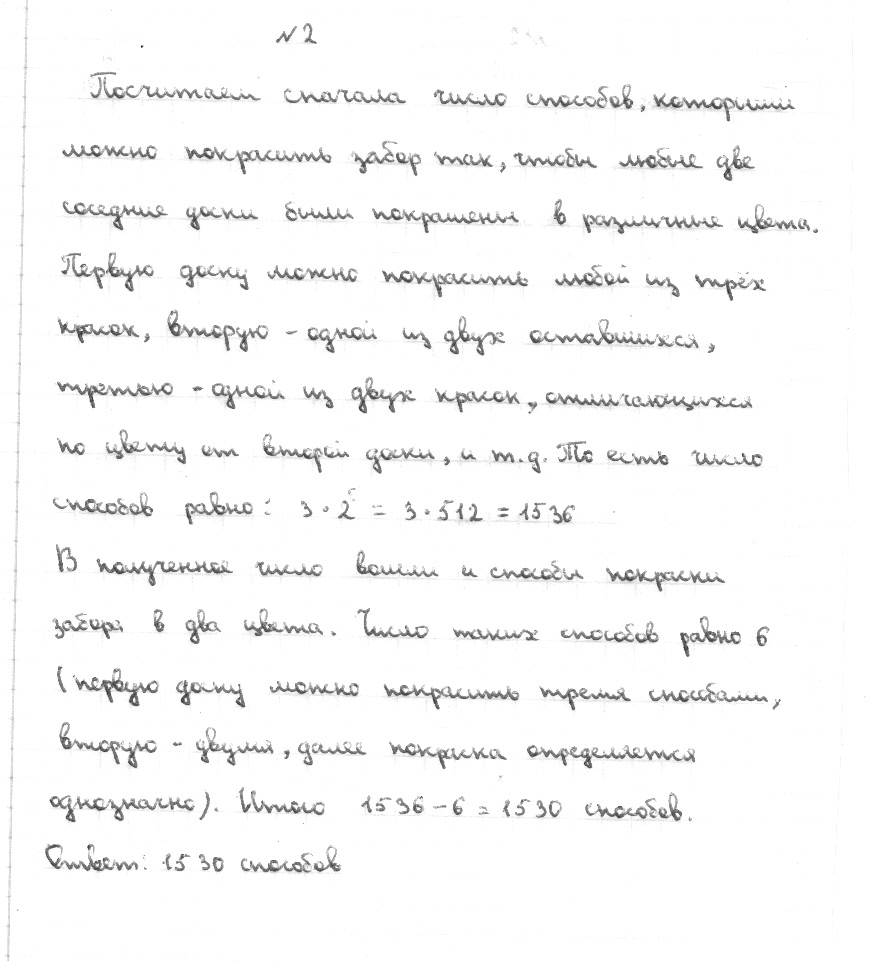 №2
Посчитаем сначала число способов, которыми
можно покрасить забор так, чтобы любые две
соседние доски были покрашены в различные цвета.
Первую доску можно покрасить любой из трёх
красок, вторую - одной из двух оставшихся,
третью - одной из двух красок, отличающихся
по цвету от второй доски, и т.д. То есть число
способов равно: 3 · 2 = 3 · 512 = 1536
В полученное число вошли и способы покраски
забора в два цвета. Число таких способов равно 6
(первую доску можно покрасить тремя способами,
вторую - двумя, далее покраска определяется
однозначно). Итого 1536 - 6 = 1530 способов.
Ответ: 1530 способов